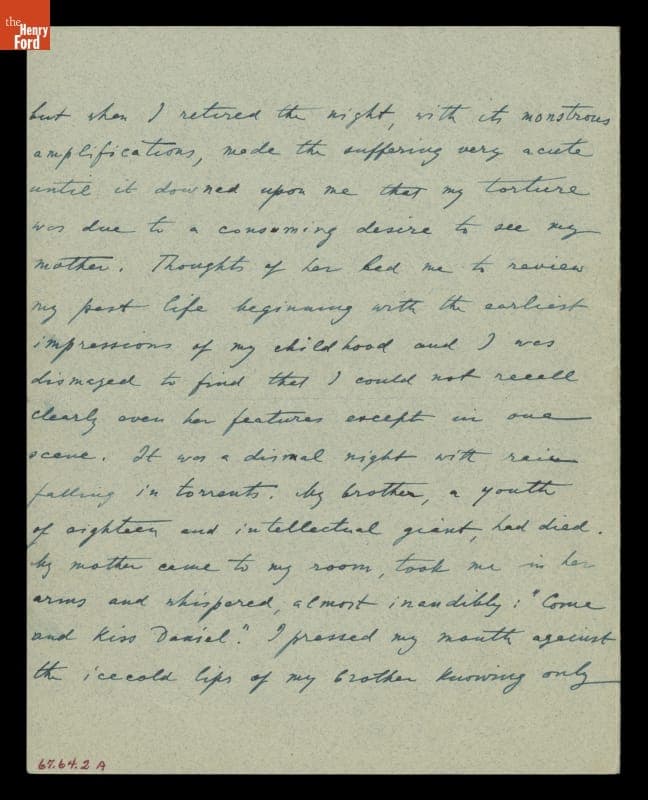 the
Henry
Ford
but when I retired the night, with its monstrous
amplifications, made the suffering very acute
until it downed upon me that my torture
was due to a consuming desire to see my
mother. Thoughts of her led me to review
my past life beginning with the earliest
impressions of my childhood and I was
dismayed to find that I could not recall
clearly even her features except in one
scene. It was a dismal night with rain
falling in torrents. My brother, a youth
of eighteen and intellectual giant, had died.
My mother came to my room, took me in her
arms and whispered, almost inaudibly: "Come
and kiss Daniel." I pressed my mouth against
the icecold lips of my brother knowing only
67.64.2 A